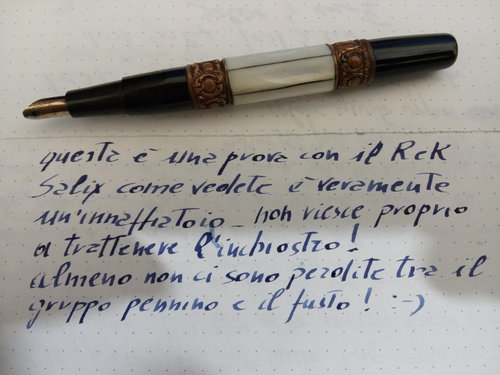 questa è una prova con il R&K
Salix come vedete è veramente
un'innaffiatoio non riesce proprio
a trattenere l'inchiostro!
almeno non ci sono perdite tra il
gruppo pennino e il fusto! :-)